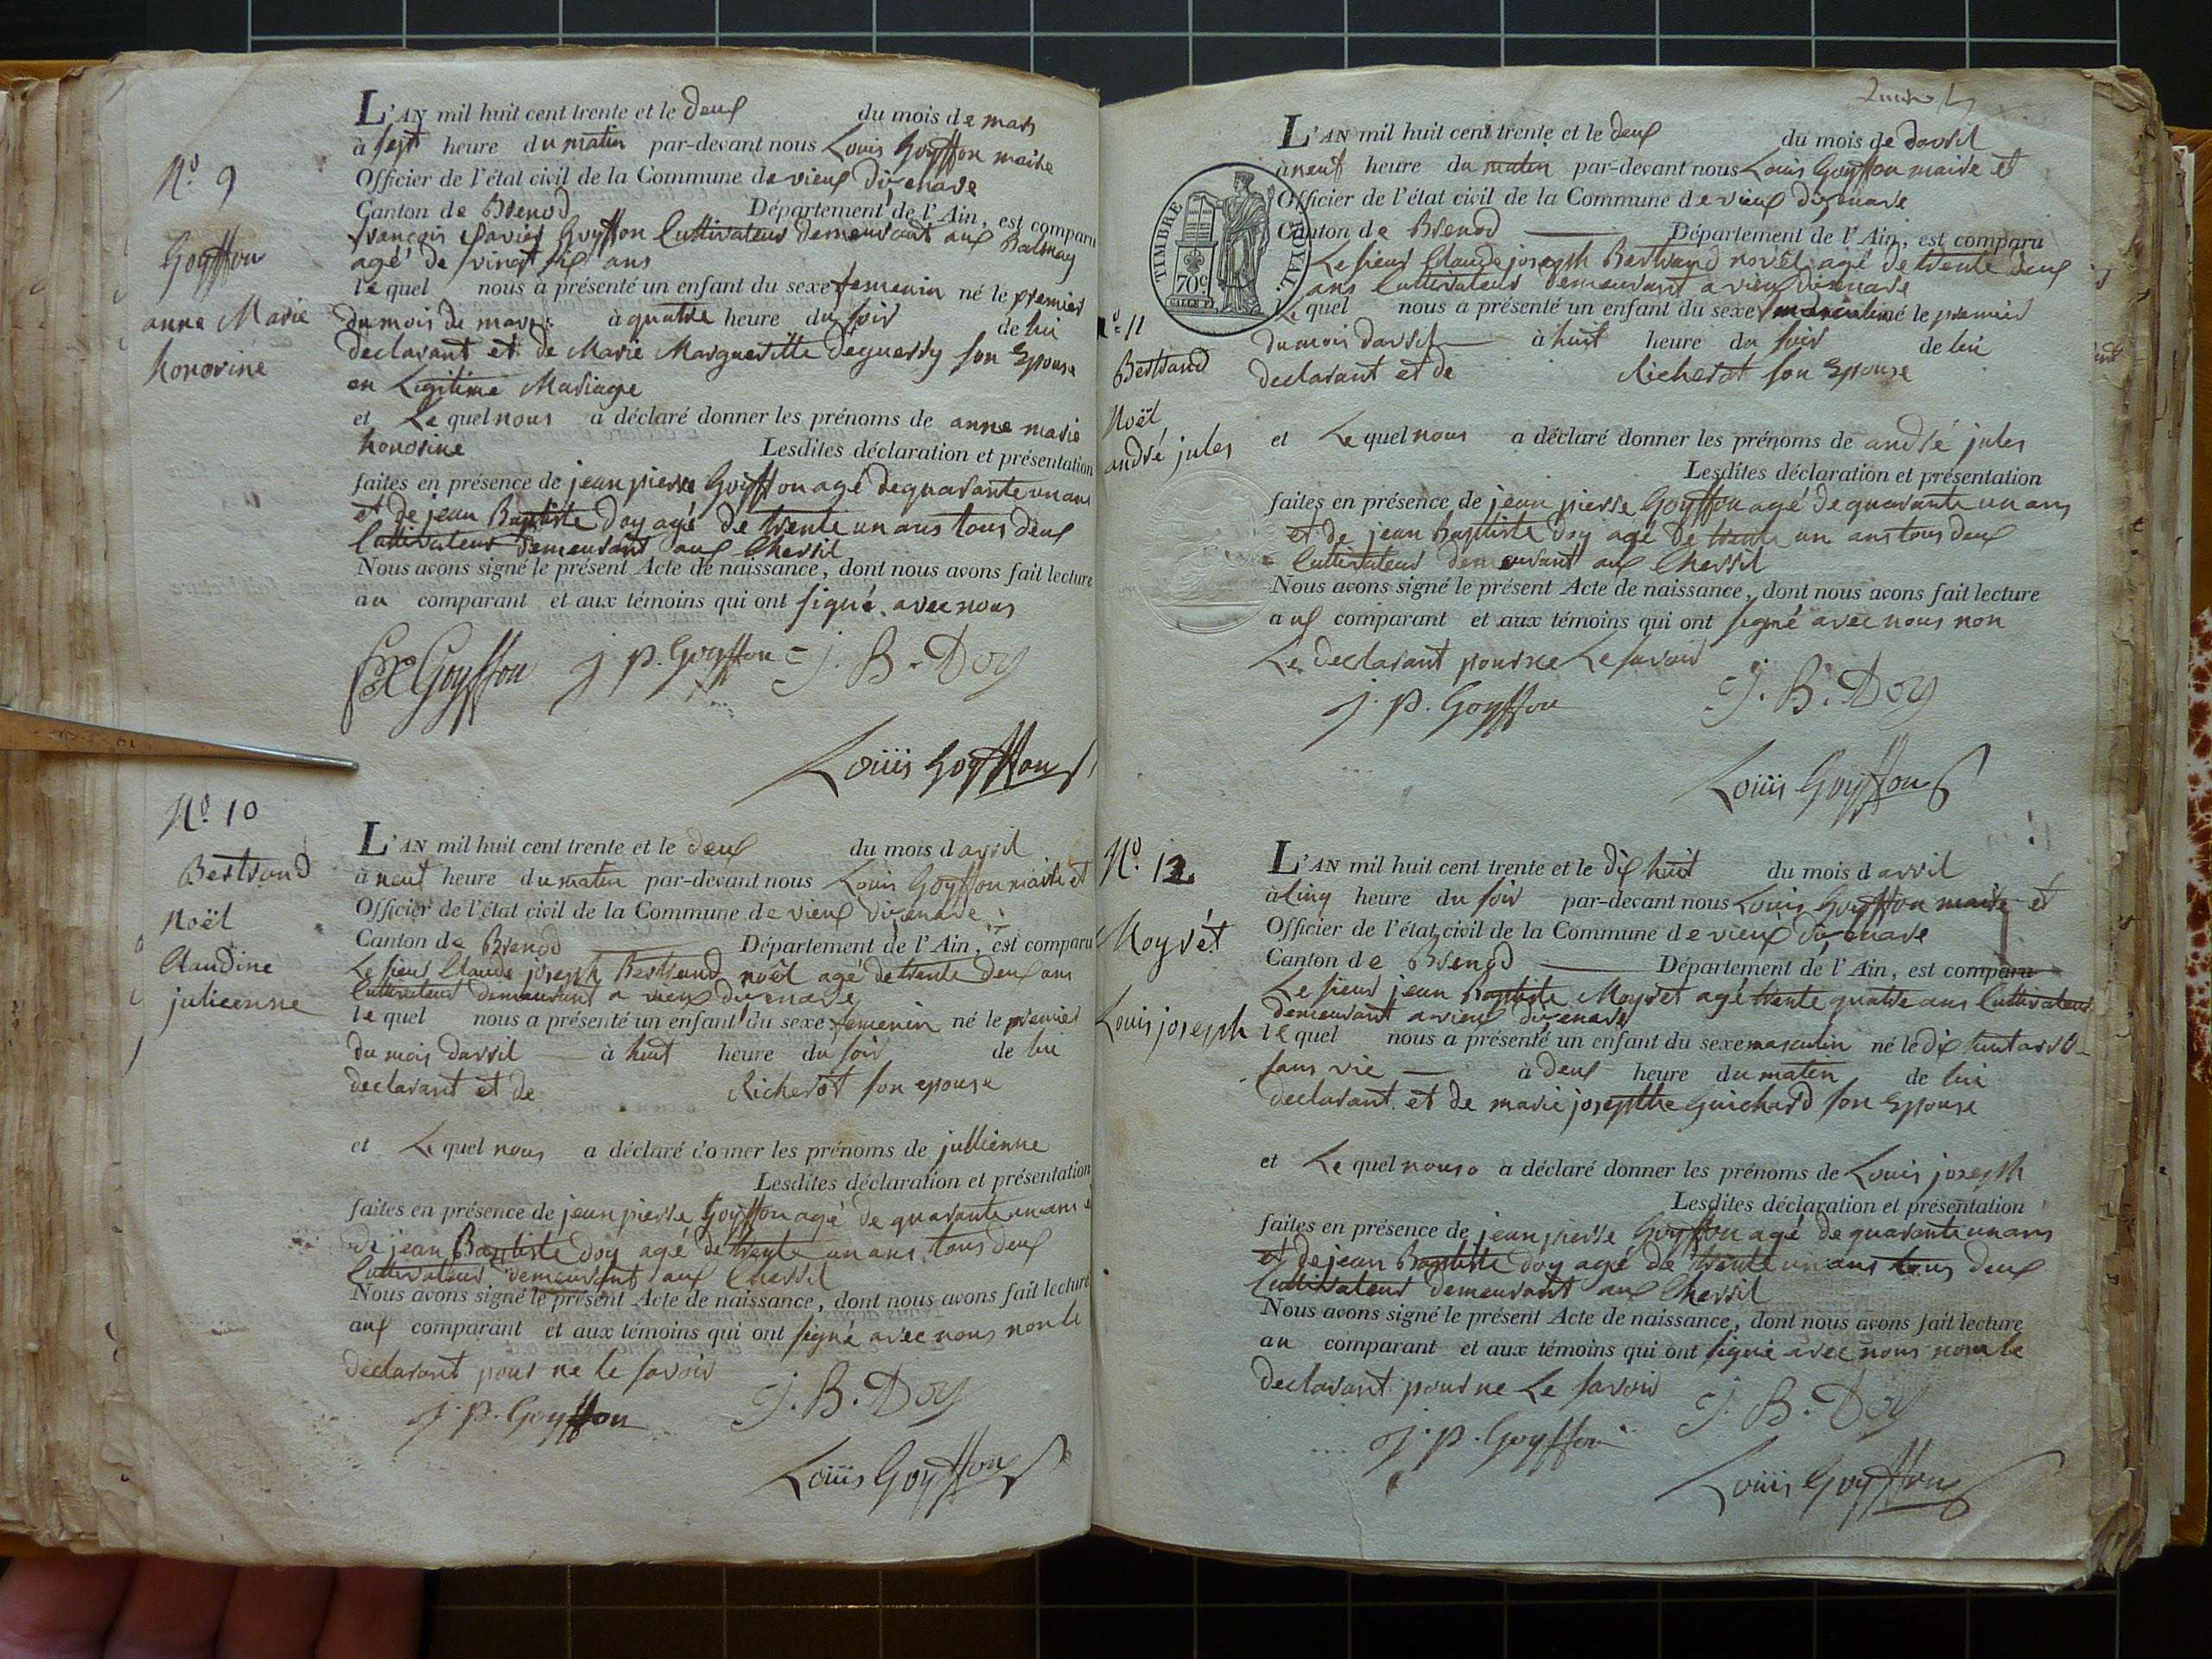 L'AN mil huit cent trente et le deux du mois de mars
à sept heure du matin par-devant nous Louis Goyffon maire
Officier de l'état civil de la Commune de vieux dizenave
Canton de Brenod Département de l'Ain, est comparu
françois Xavier Goyffon Cultivateur demeurant aux Balmay
agé de vingt six ans
le quel nous a présenté un enfant du sexe femenin né le premier
du mois de mars à quatre heure du soir de lui
declarant et de Marie Margueritte deguerry son Epouse
en Legitime Mariage
et Le quel nous a déclaré donner les prénoms de anne marie
honorine Lesdites déclaration et présentation
faites en présence de jean pierre Goyffon agé de quarante un ans
et de jean Baptiste doy agé de trente un ans tous deux
Cultivateur demeurant aux Chevril
Nous avons signé le présent Acte de naissance, dont nous avons fait lecture
au comparant et aux témoins qui ont signé avec nous
fx Goyffon j. p. Goyffon J. B. Doy
Louis Goyffon
N.º 9
Goyffon
anne Marie
honorine
N.º 10
Bertrand
Noël
Claudine
julienne
L'AN mil huit cent trente et le deux du mois d avril
à neuf heure du matin par-devant nous Louis Goyffon maire et
Officier de l'état civil de la Commune de vieux dizenave
Canton de Brenod Département de l'Ain, est comparu
Le sieur Claude joseph Bertrand noël agé de trente deux ans
Cultivateur demeurant a vieux dizenave
le quel nous a présenté un enfant du sexe femenin né le premier
du mois davril à huit heure du soir de lui
declarant et de Richerot son epouse
et Le quel nous a déclaré donner les prénoms de jullienne
Lesdites déclaration et présentation
faites en présence de jean pierre Goyffon agé de quarante un ans et
de jean Baptiste doy agé de trente un ans tous deux
Cultivateur demeurant aux Chevril
Nous avons signé le présent Acte de naissance, dont nous avons fait lecture
aux comparant et aux témoins qui ont signé avec nous non le
declarant pour ne le savoir
j. p. Goyffon J. B. Doy
Louis Goyffon
TIMBRE ROYAL
70 c
N.º 11
Bertrand
Noël
andré jules
L'AN mil huit cent trente et le deux du mois de davril
à neuf heure du matin par-devant nous Louis Goyffon maire et
Officier de l'état civil de la Commune de vieux dizenave
Canton de Brenod Département de l'Ain, est comparu
Le sieur Claude joseph Bertrand novel agé de trente deux
ans Cultivateur demeurant a vieux dizenave
Le quel nous a présenté un enfant du sexe masculin né le premier
du mois davril à huit heure du soir de lui
declarant et de Richerot son Epouse
et Le quel nous a déclaré donner les prénoms de andré jules
Lesdites déclaration et présentation
faites en présence de jean pierre Goyffon agé de quarante un ans
et de jean Baptiste doy agé de trente un ans tous deux
Cultivateur demeurant aux Chevril
Nous avons signé le présent Acte de naissance, dont nous avons fait lecture
aux comparant et aux témoins qui ont signé avec nous non
Le declarant pour ne Le savoir
j. p. Goyffon J. B. Doy
Louis Goyffon
N.º 12
Moyrèt
Louis joseph
L'AN mil huit cent trente et le dix huit du mois d avril
à Cinq heure du soir par-devant nous Louis Goyffon maire et
Officier de l'état civil de la Commune de vieux dizenave
Canton de Brenod Département de l'Ain, est comparu
Le sieur jean Baptiste Moyret agé trente quatre ans Cultivateur
demeurant a vieux dizenave
le quel nous a présenté un enfant du sexe masculin né le dix huit avril
sans vie à deux heure du matin de lui
declarant et de marie josepthe Guichard son Epouse
et Le quel nous a déclaré donner les prénoms de Louis joseph
Lesdites déclaration et présentation
faites en présence de jean pierre Goyffon agé de quarante un ans
et de jean Baptiste doy agé de trente un ans tous deux
Cultivateur demeurant aux Chevril
Nous avons signé le présent Acte de naissance, dont nous avons fait lecture
au comparant et aux témoins qui ont signé avec nous non le
declarant pour ne Le savoir
j. p. Goyffon J. B. Doy
Louis Goyffon